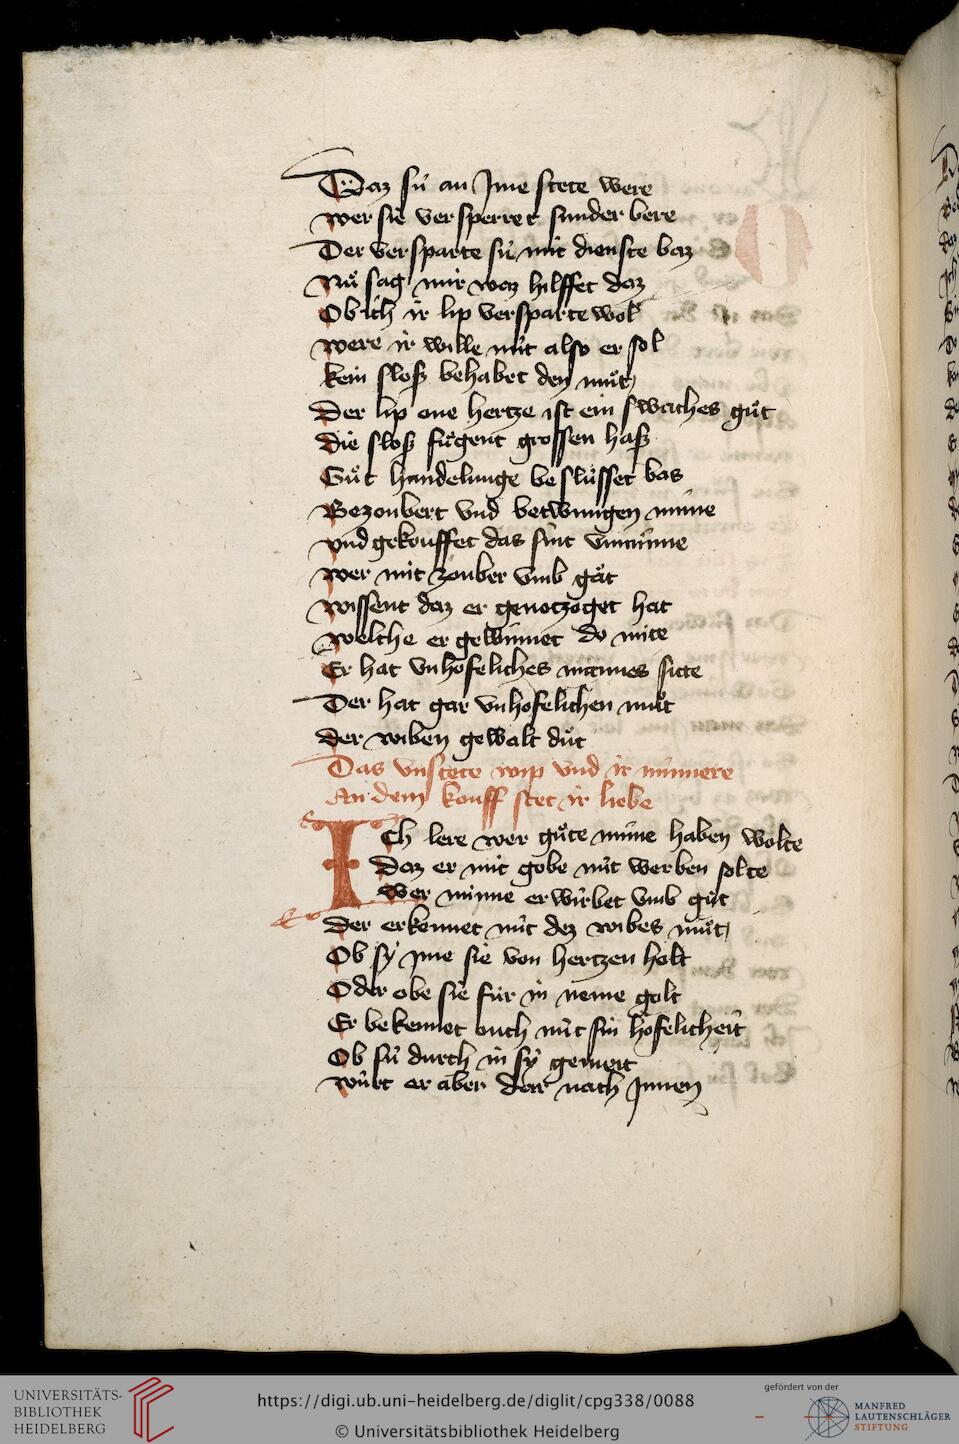 Daz sú an Jme stete were
wer sie versperret sunder bere
Der versparte sú mit dienste baz
Nů sag mir waz hilffet daz
Ob ich ir lip versparte wol
were ir wille nút also er sol
kein sloß behabet den můt
Der lip one hertze ist ein swaches gůt
die sloß fůgent grossen haß
Gůt handelunge beslússet bas
Bezoubert vnd betwungen minne
vnd gekouffet das sint vnminne
wer mit zouber vmb gat
wissent daz er genotzoget hat
welche er gewinnet do mite
Er hat vnhofeliches mannes sitte
Der hat gar vnhofelichen můt
der wiben gewalt důt
Das vnstete wip vnd ir minnere
An dem kouff stet ir liebe
ICh lere wer gůte minne haben wolte
daz er mit gobe nút werben solte
wer minne erwirbet vmb gůt
der erkennet nút dez wibes můt
Ob sy jme sie von hertzen holt
Oder obe sie fúr in neme golt
Er bekennet ouch nút sin hofelicheit
Ob sú durch in sy gemeit
wúrt er aber dar nach Jnnen
UNIVERSITÄTS-
BIBLIOTHEK
HEIDELBERG
https://digi.ub.uni-heidelberg.de/diglit/cpg338/0088
© Universitätsbibliothek Heidelberg
gefördert von der
MANFRED
LAUTENSCHLÄGER
STIFTUNG